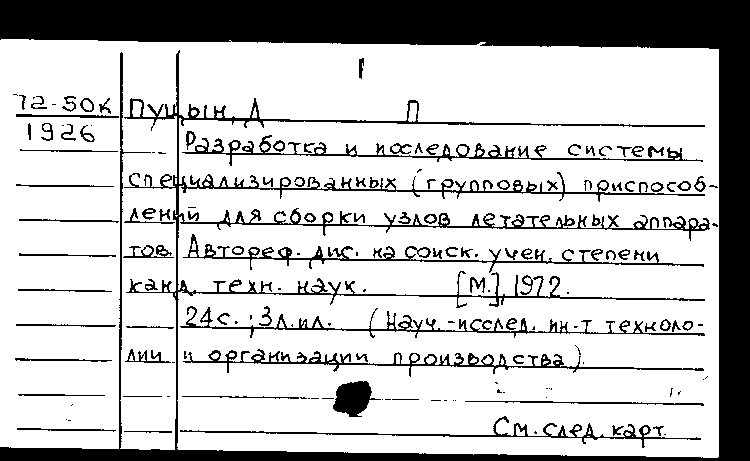 1
72-50к Пуцын, Д П
1926
Разработка и исследование системы
специализированных (групповых) приспособ-
лений для сборки узлов летательных аппара-
тов. Автореф. дис. на соиск. учен. степени
канд. техн. наук. [М.], 1972.
24с.; 3л.ил. (Науч.-исслед. ин-т техноло-
лии и организации производства)
См. след. карт.